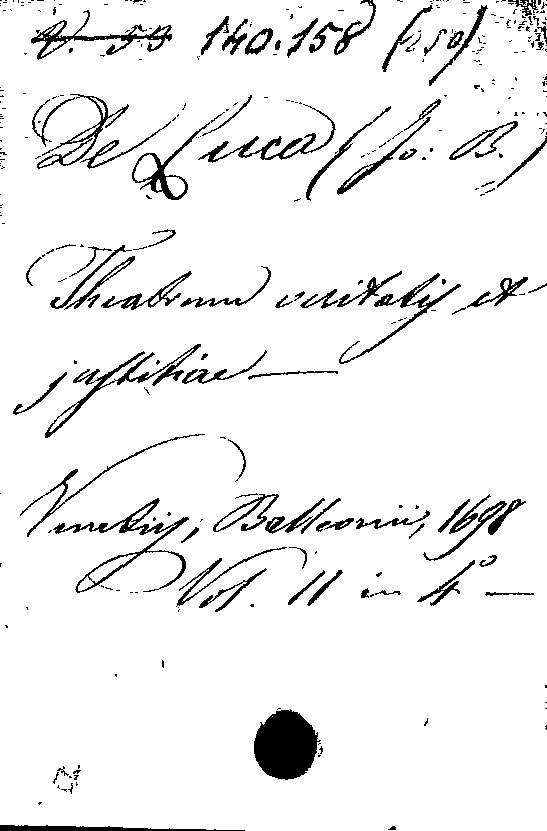 V. 53 140.158 (250)
De Luca (Jo: B.)
Theatrum veritatis et
justitiae —
Venetiis, Balleonii, 1698
Vol. 11 in 4° —